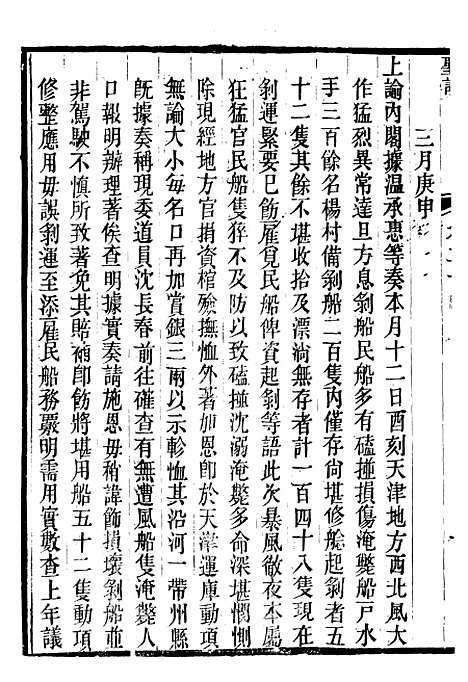 聖訓
三月庚申
上諭內閣據溫承惠等奏本月十二日酉刻天津地方西北風大
作猛烈異常達旦方息剝船民船多有磕撞損傷淹斃船戶水
手三百餘名楊村備剝船二百隻內僅存尚堪修艌起剝者五
十二隻其餘不堪收拾及漂淌無存者計一百四十八隻現在
剝運緊要已飭雇覓民船俾資起剝等語此次暴風徹夜本屬
狂猛官民船隻猝不及防以致磕撞沈溺淹斃多命深堪憫惻
除現經地方官捐資棺殮撫恤外著加恩卽於天津運庫動項
無論大小每名口再加賞銀三兩以示軫恤其沿河一帶州縣
旣據奏稱現委道員沈長春前往確查有無遭風船隻淹斃人
口報明辦理著俟查明據實奏請施恩毋稍諱飾損壞剝船並
非駕駛不慎所致著免其賠補卽飭將堪用船五十二隻動項
修整應用毋誤剝運至添雇民船務覈明需用實數查上年議